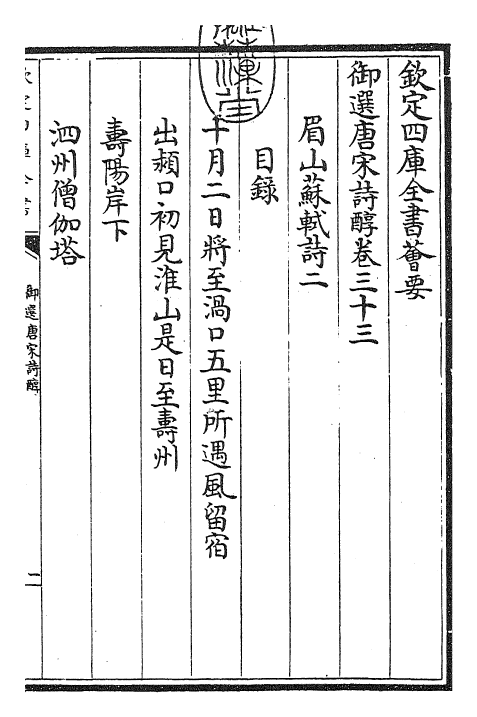 欽定四庫全書薈要
御選唐宋詩醇卷三十三
眉山蘇軾詩二
目錄
十月二日將至渦口五里所遇風留宿
出潁口初見淮山是日至壽州
壽陽岸下
泗州僧伽塔
御選唐宋詩醇